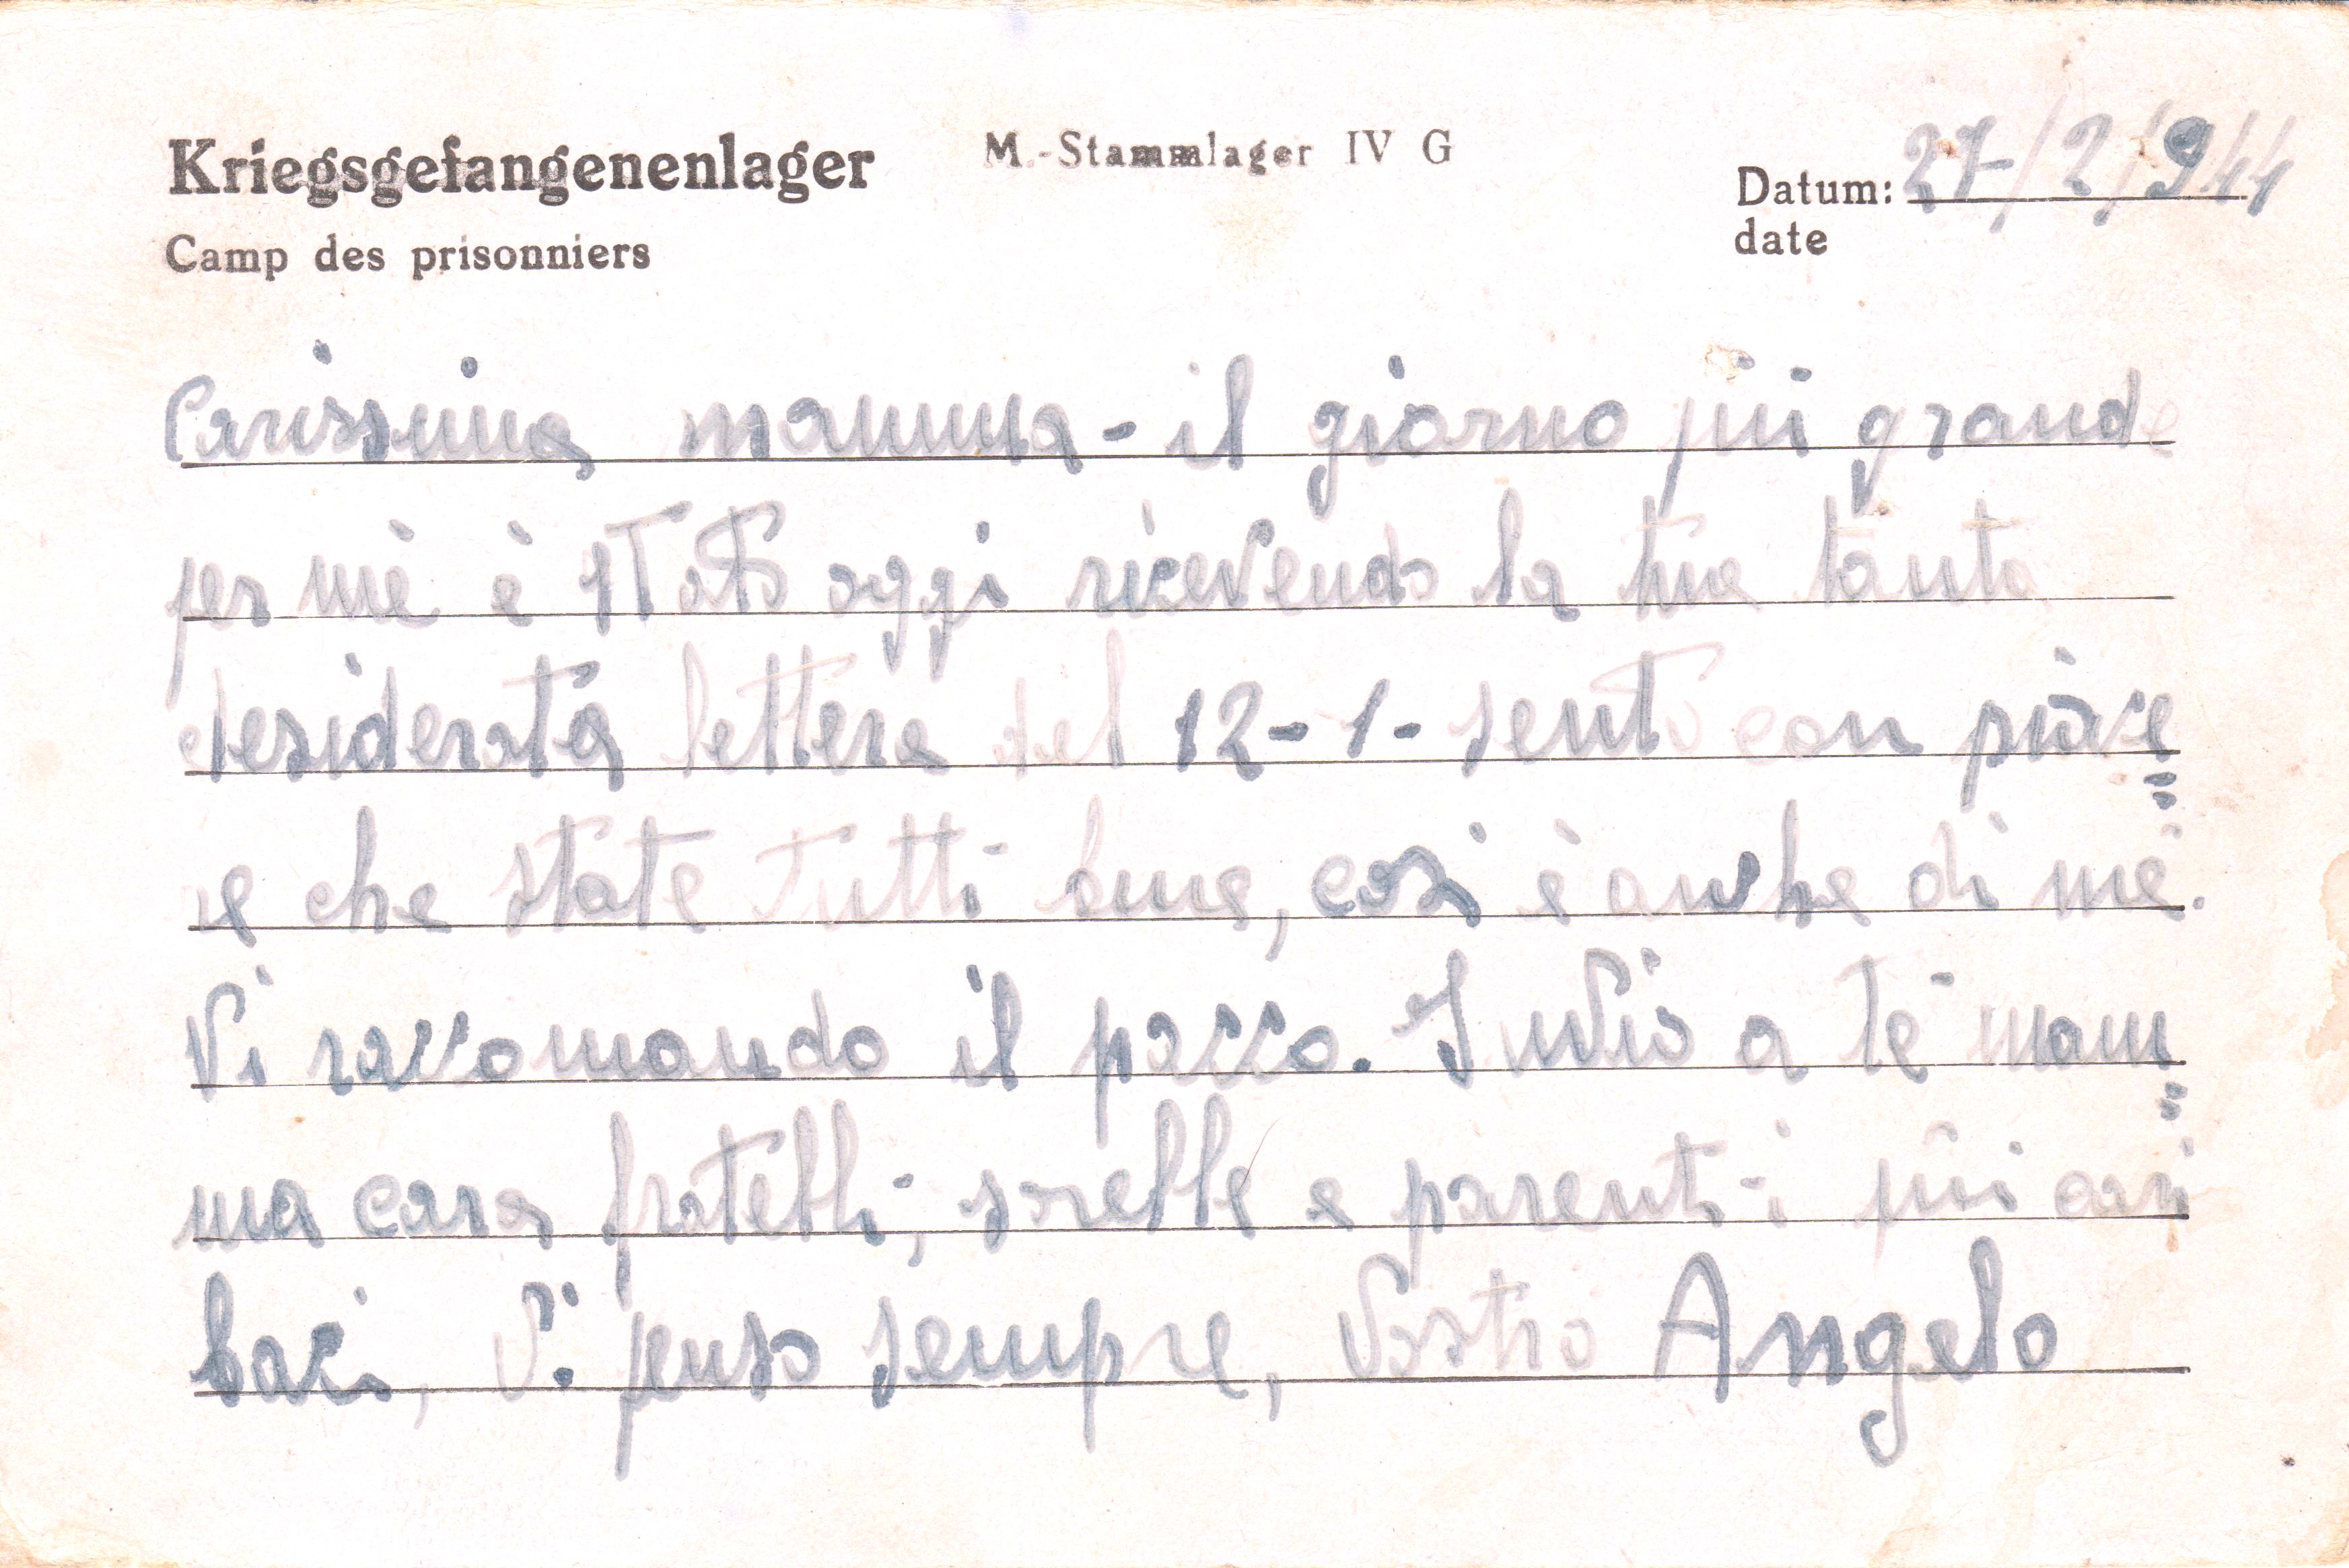 Kriegsgefangenenlager
M.-Stammlager IV G
Datum: 27/2/944
Camp des prisonniers
date
Carissima mamma - il giorno più grande
per mè è stato oggi ricevendo la tua tanta
desiderata lettera del 12-1- sento con piace=
re che state tutti bene, così è anche di mè.
Vi raccomando il pacco. Invio a tè mam=
ma cara fratelli, sorelle e parenti i più cari
baci, Vi penso sempre, Vostro Angelo